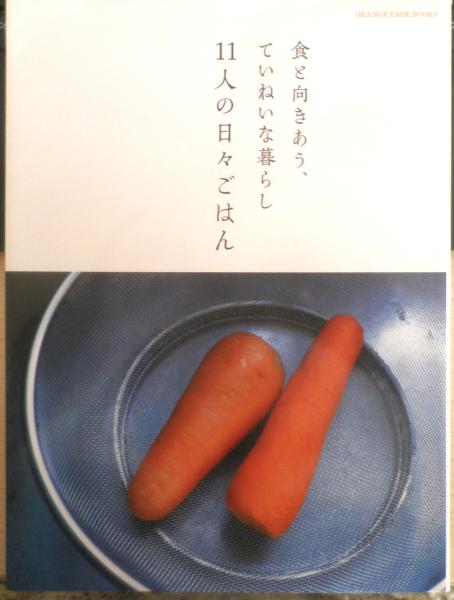 ORANGE PAGE BOOKS
食と向きあう、
ていねいな暮らし
11人の日々ごはん